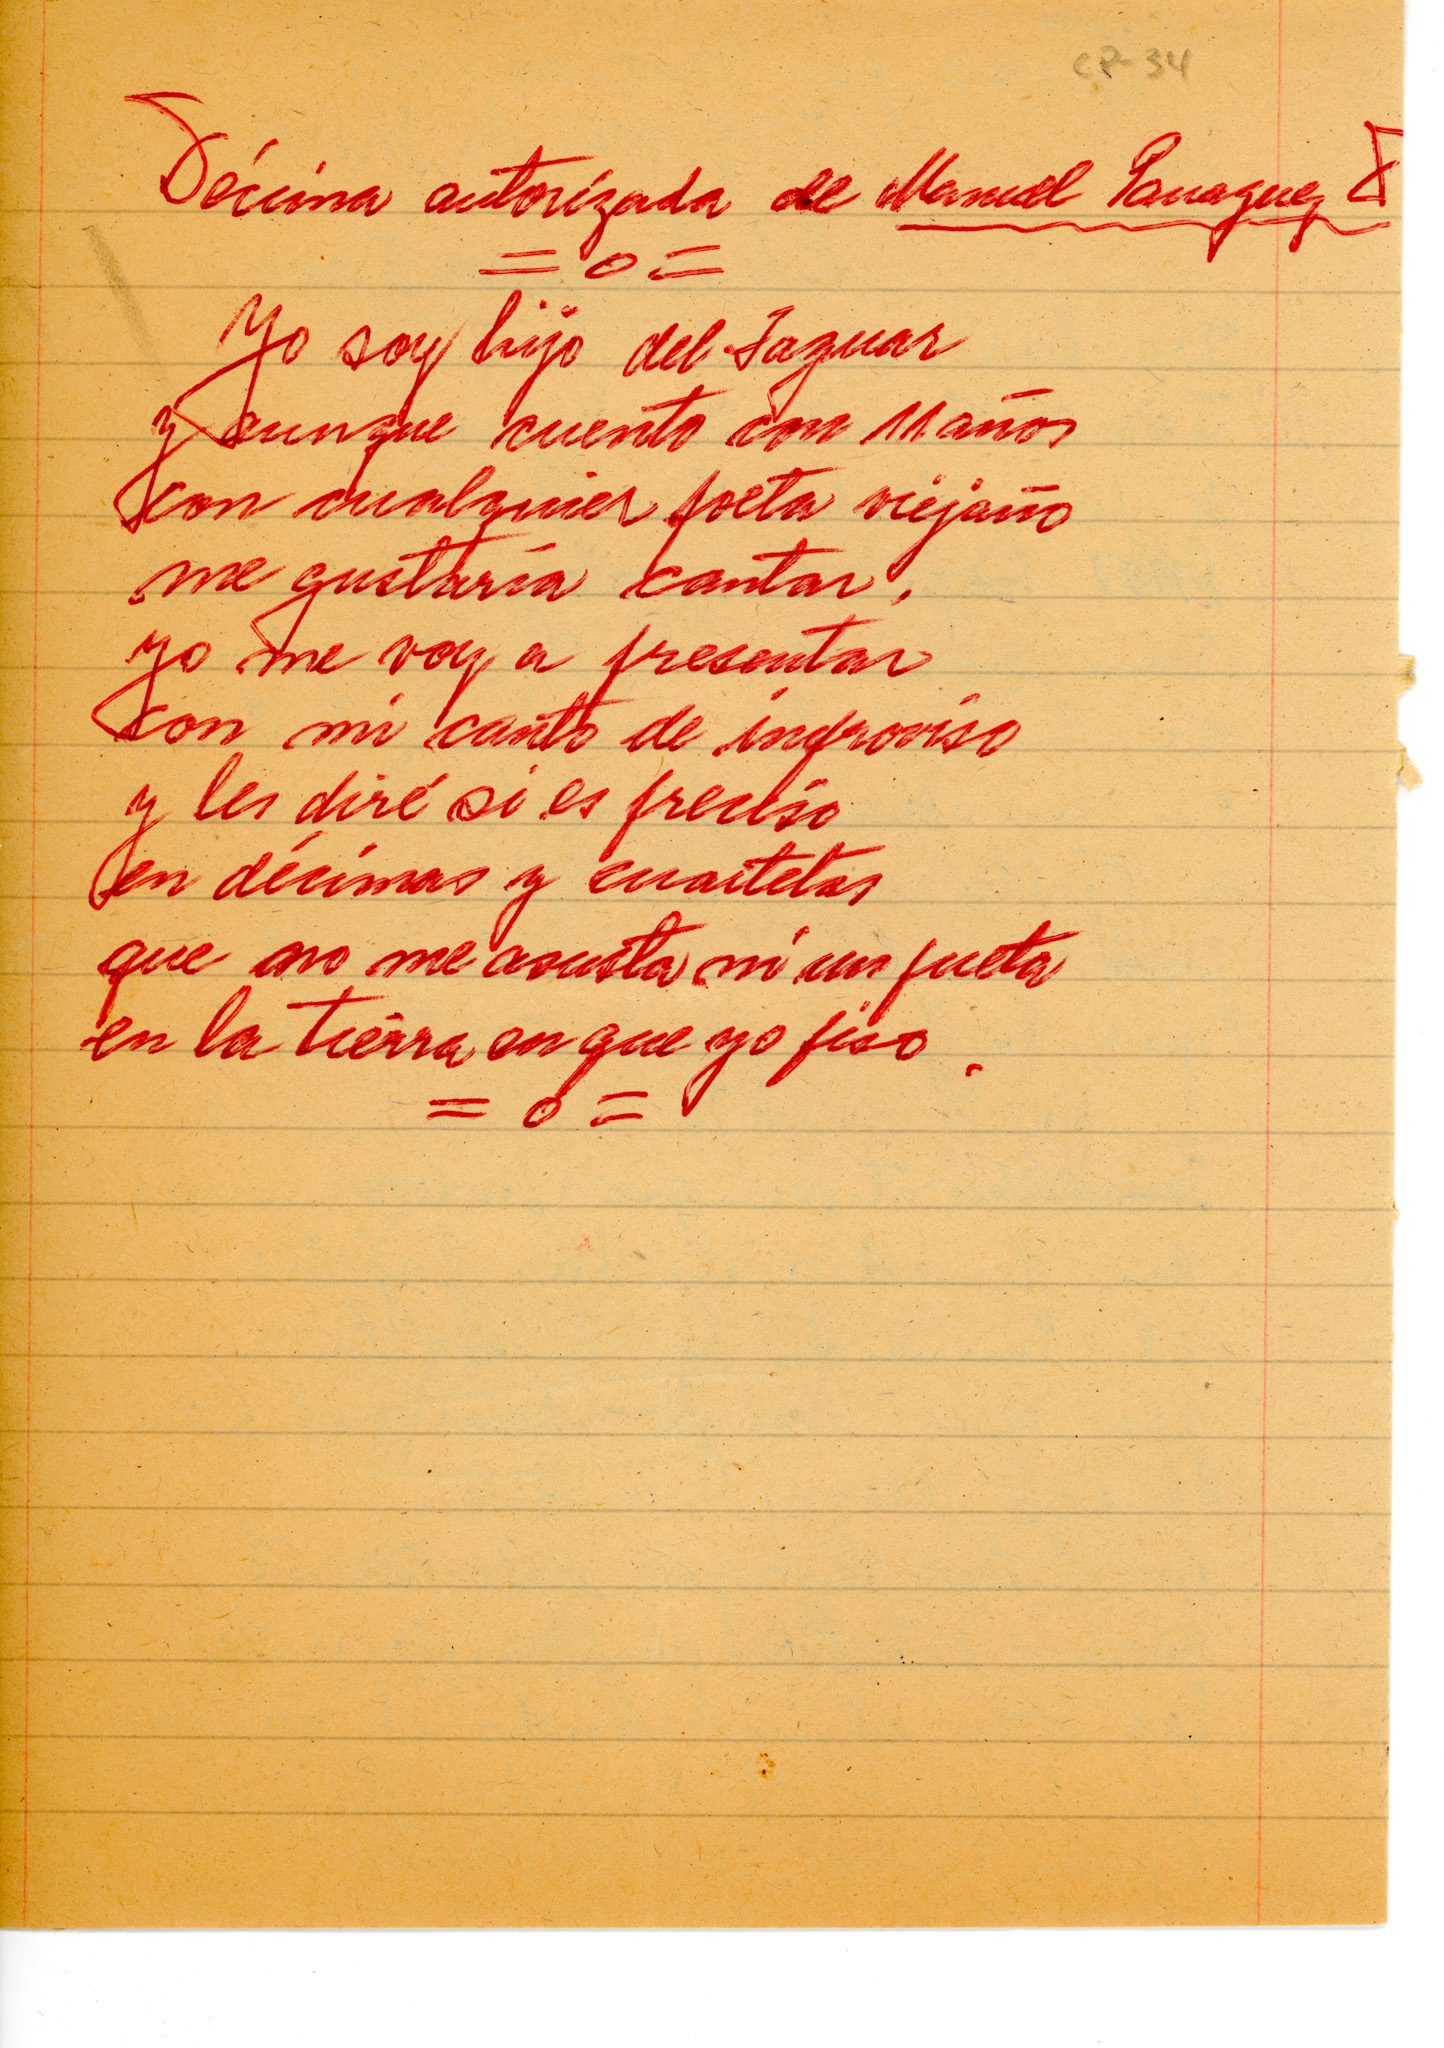 CP-34
Décima autorizada de Manuel Panaquez
= o =
Yo soy hijo del Jaguar
y aunque cuento con 11 años
con cualquier poeta viejaño
me gustaría cantar,
yo me voy a presentar
con mi canto de improviso
y les diré si es preciso
en décimas y cuartetas
que no me asusta ni un pueta
en la tierra en que yo piso.
= o =